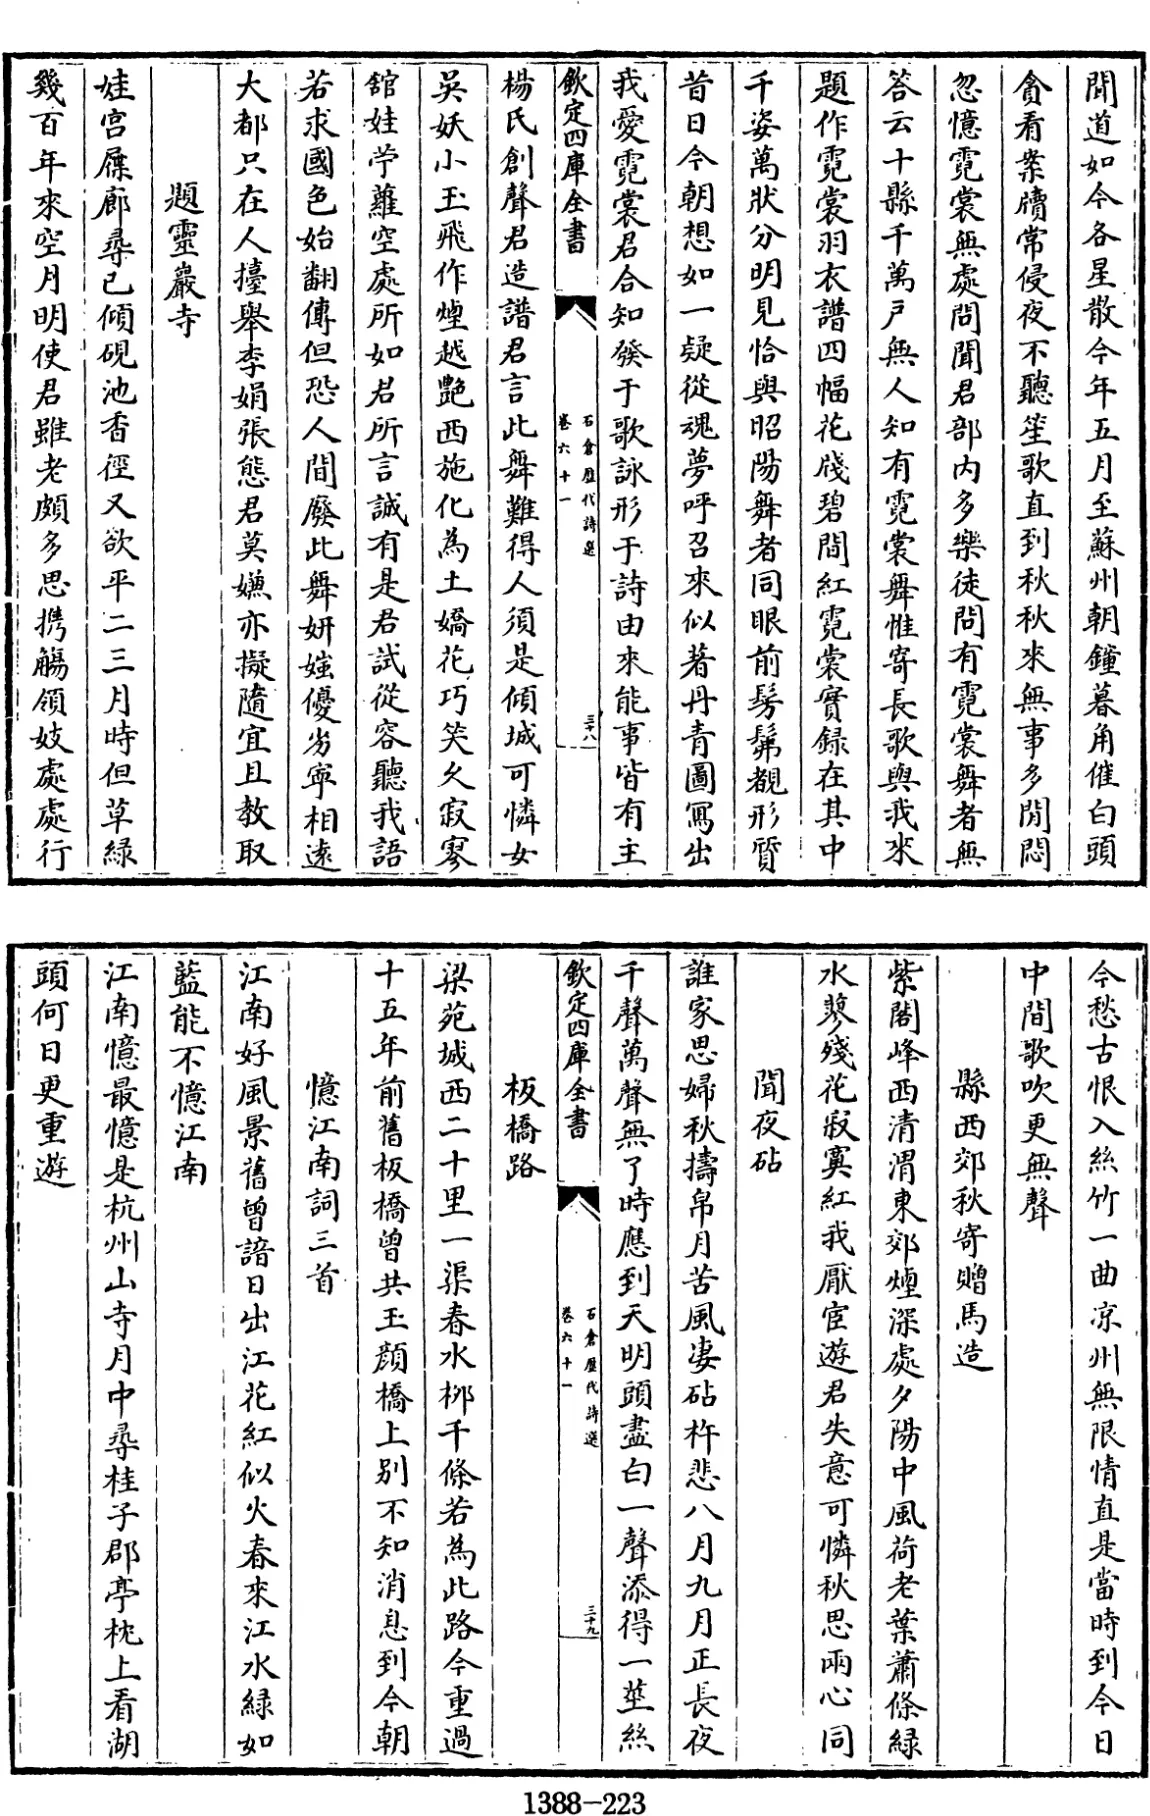 聞道如今各星散今年五月至蘇州朝鐘暮角催白頭
貪看案牘常侵夜不聽笙歌直到秋秋來無事多閒悶
忽憶霓裳無處問聞君部内多樂徒問有霓裳舞者無
答云十縣千萬戶無人知有霓裳舞惟寄長歌與我來
題作霓裳羽衣譜四幅花牋碧間紅霓裳實録在其中
千姿萬狀分明見恰與昭陽舞者同眼前髣髴覩形質
昔日今朝想如一疑從魂夢呼召來似著丹青圖寫出
我愛霓裳君合知發于歌詠形于詩由來能事皆有主
欽定四庫全書
石倉歷代詩選
卷六十一
三十八
楊氏創聲君造譜君言此舞難得人須是傾城可憐女
吳妖小玉飛作煙越艷西施化為土嬌花巧笑久寂寥
館娃苧蘿空處所如君所言誠有是君試從容聽我語
若求國色始翻傳但恐人間廢此舞妍媸優劣寧相遠
大都只在人擡舉李娟張態君莫嫌亦擬隨宜且教取
題靈巖寺
娃宮屧廊尋已傾硯池香徑又欲平二三月時但草緑
幾百年來空月明使君雖老頗多思攜觴領妓處處行
今愁古恨入絲竹一曲凉州無限情直是當時到今日
中間歌吹更無聲
縣西郊秋寄贈馬造
紫閣峰西清渭東郊煙深處夕陽中風荷老葉蕭條緑
水蓼殘花寂寞紅我厭宦遊君失意可憐秋思兩心同
聞夜砧
誰家思婦秋擣帛月苦風凄砧杵悲八月九月正長夜
千聲萬聲無了時應到天明頭盡白一聲添得一莖絲
欽定四庫全書
石倉歷代詩選
卷六十一
三十九
板橋路
梁苑城西二十里一渠春水栁千條若為此路今重過
十五年前舊板橋曾共玉顔橋上别不知消息到今朝
憶江南詞三首
江南好風景舊曾諳日出江花紅似火春來江水緑如
藍能不憶江南
江南憶最憶是杭州山寺月中尋桂子郡亭枕上看湖
頭何日更重遊
1388-223